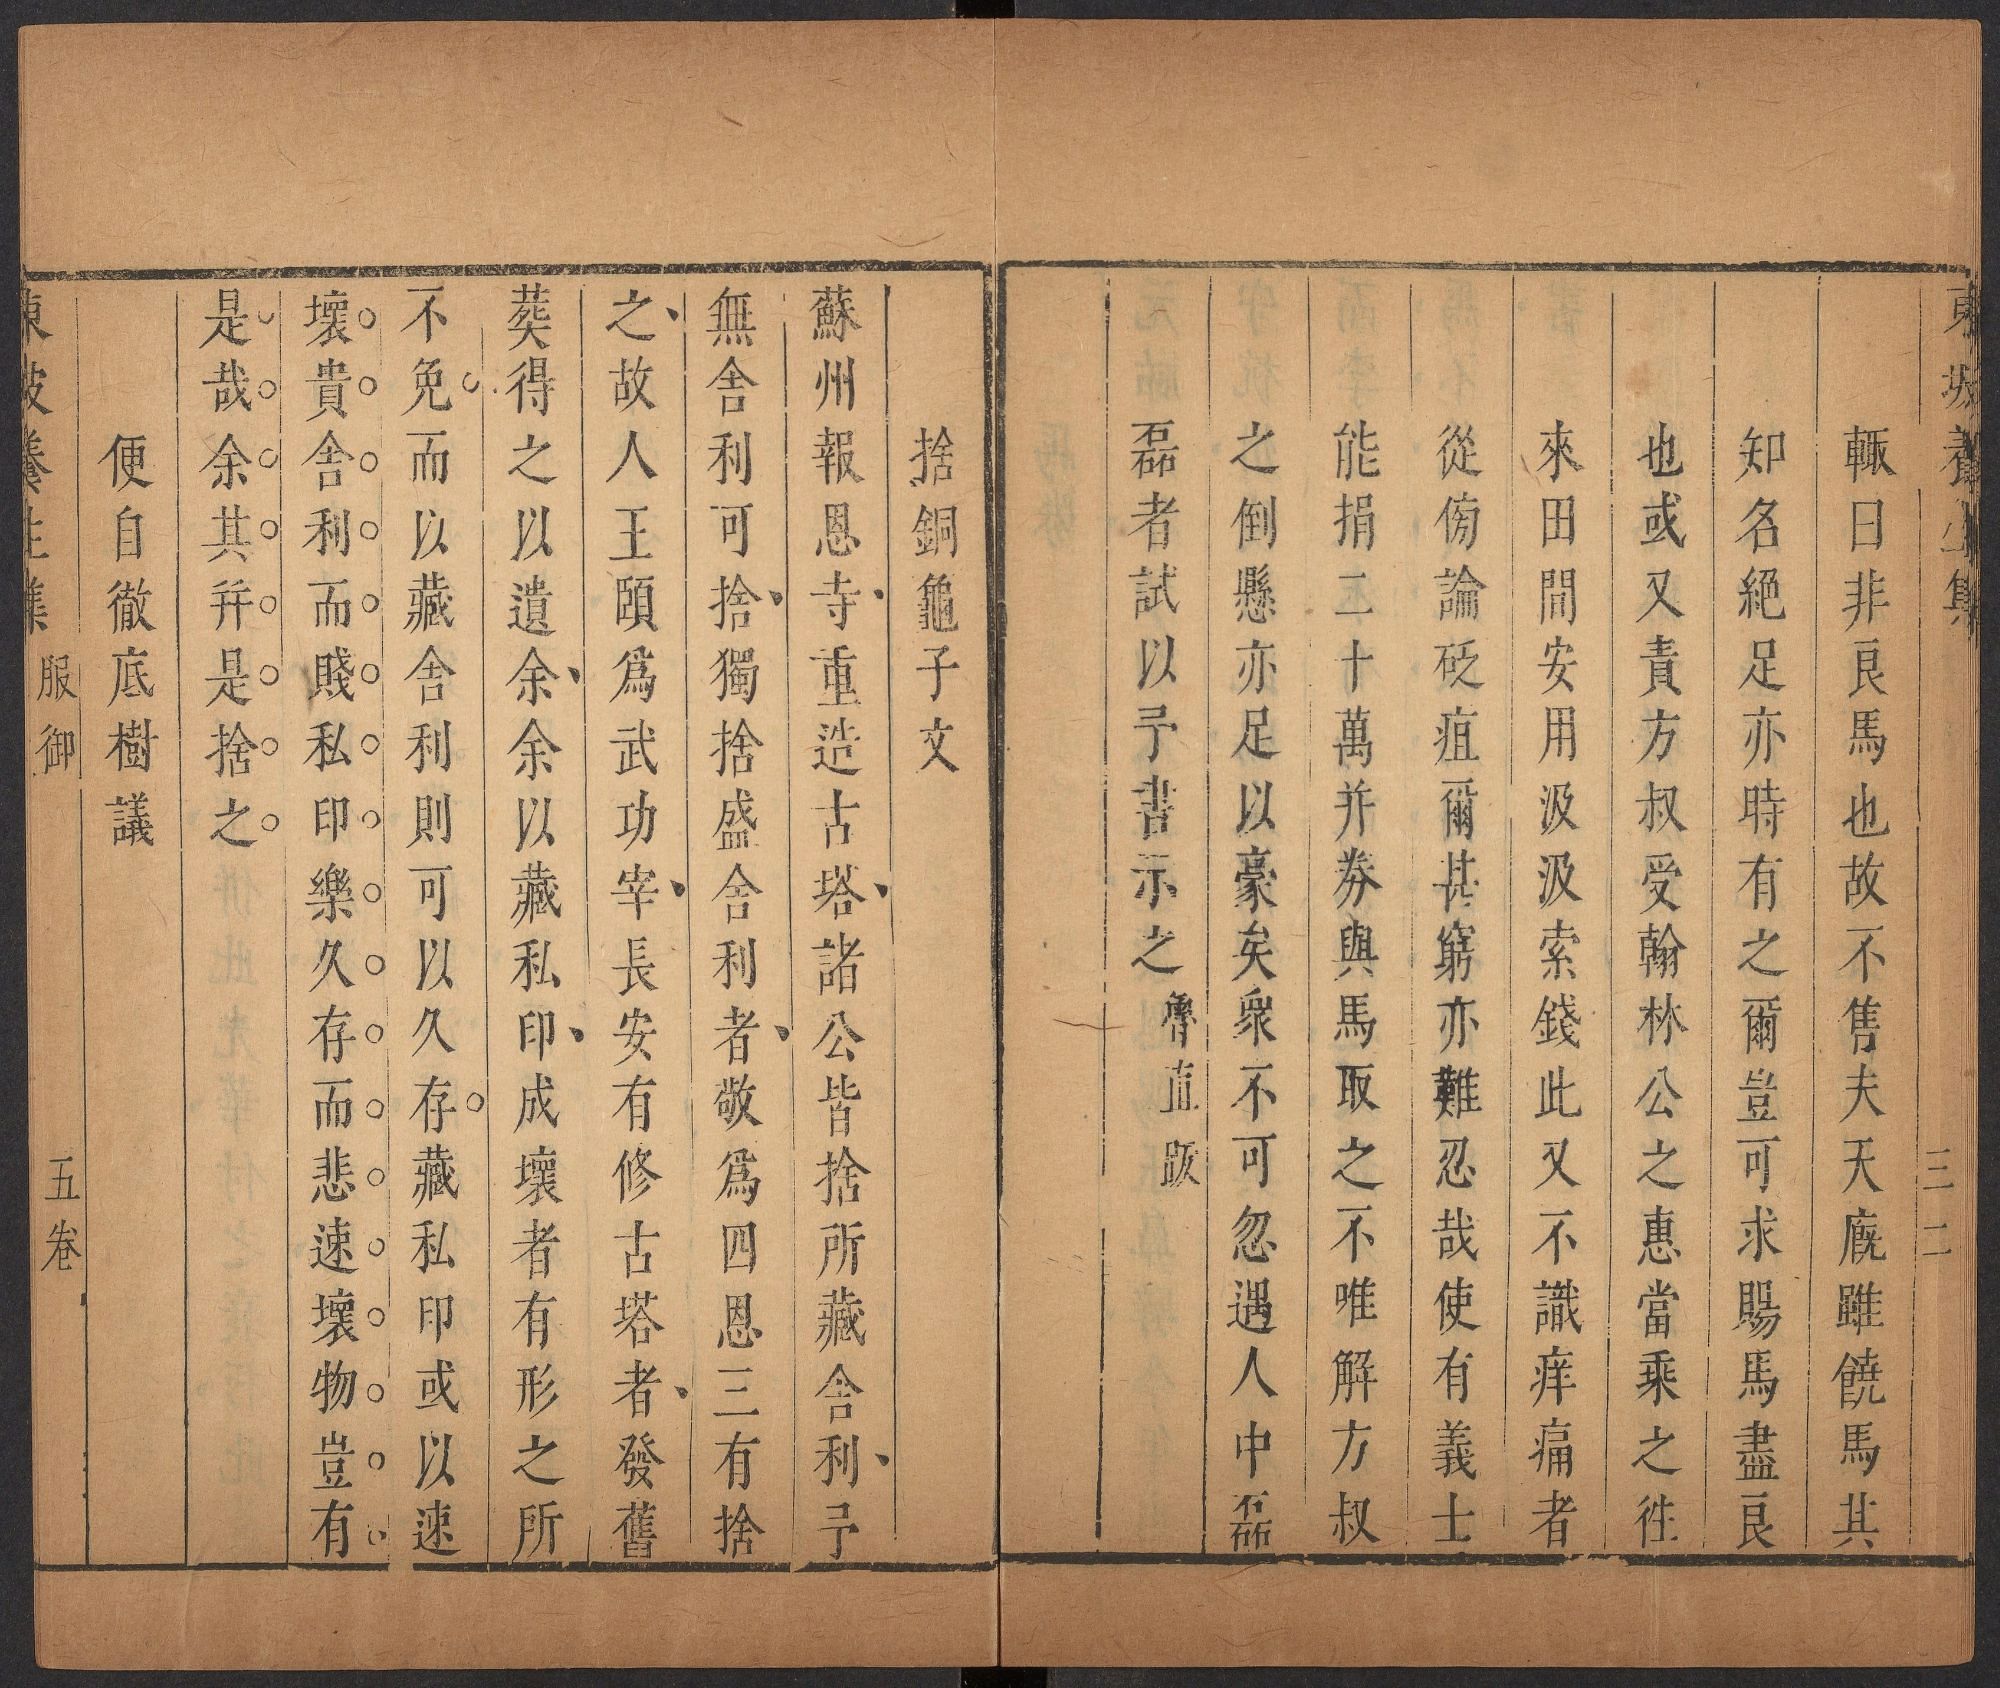 東坡養生集
三二
輒曰非良馬也故不售夫天廐雖饒馬其
知名絕足亦時有之爾豈可求賜馬盡良
也或又責方叔受翰林公之惠當乘之徃
來田間安用汲汲索錢此又不識痒痛者
從傍論砭疽爾甚窮亦難忍哉使有義士
能捐二十萬并券與馬取之不唯解方叔
之倒懸亦足以豪矣衆不可忽遇人中磊
磊者試以予書示之魯直䟦
捨銅龜子文
蘇州報恩寺重造古塔諸公皆捨所藏舍利予
無舍利可捨獨捨盛舍利者敬爲四恩三有捨
之故人王頤爲武功宰長安有修古塔者發舊
葬得之以遺余余以藏私印成壞者有形之所
不免而以藏舍利則可以久存藏私印或以速
壞貴舍利而賤私印樂久存而悲速壞物豈有
是哉余其幷是捨之
便自徹底樹議
東坡養生集 服御 五卷